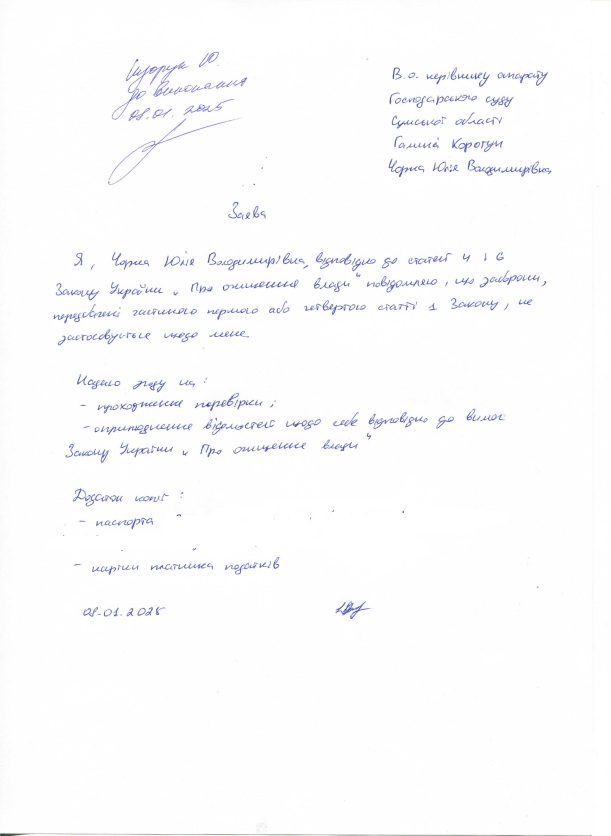 до виконання
08.01.2025
В.о. керівнику апарату
Господарського суду
Сумської області
Галині Коротун
Чорна Юлія Володимирівна
Заява
Я, Чорна Юлія Володимирівна, відповідно до статей 4 і 6
Закону України „Про очищення влади" повідомляю, що заборони,
передбачені частиною першою або четвертою статті 1 Закону, не
застосовується щодо мене.
Надаю згоду на:
- проходження перевірки;
- оприлюднення відомостей щодо себе відповідно до вимог
Закону України „Про очищення влади"
Додаток копії:
- паспорта
- картки платника податків
08.01.2025